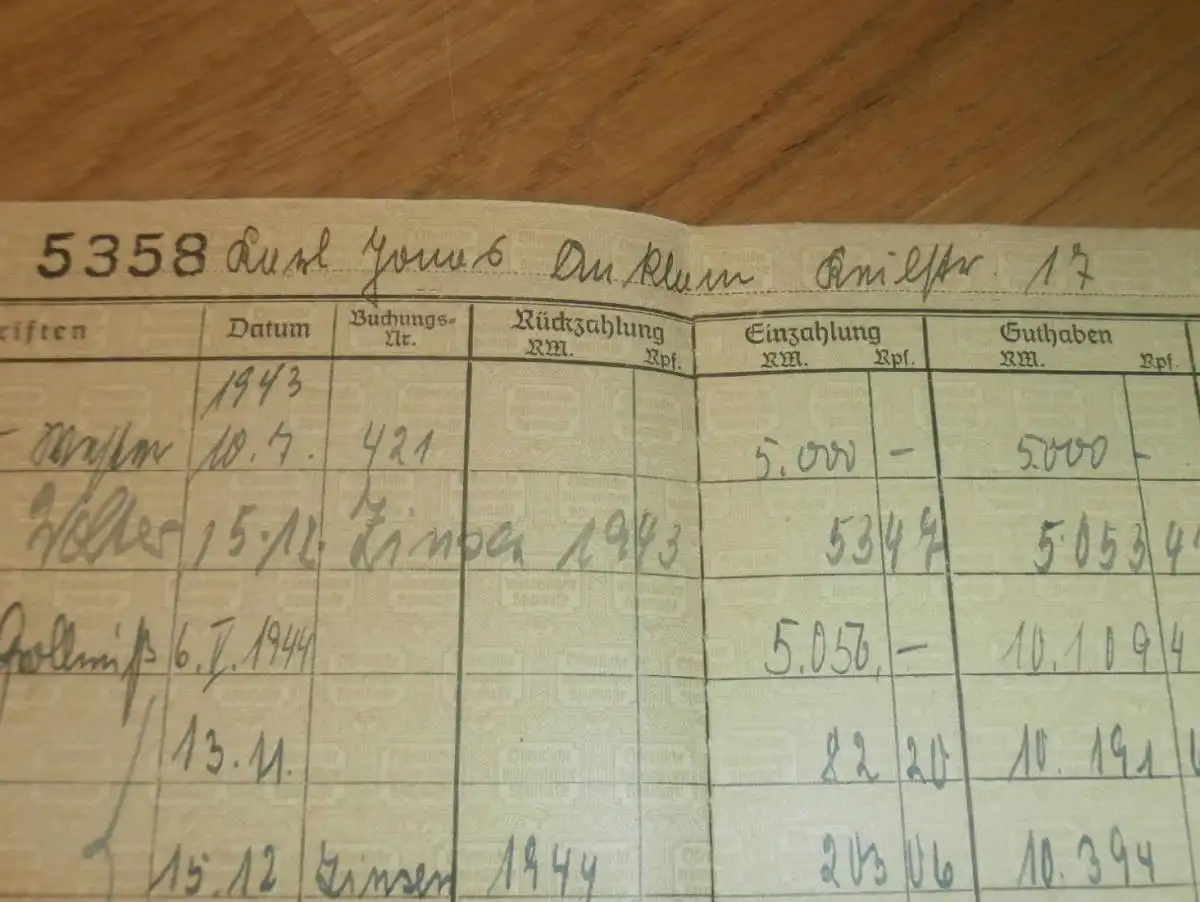 5358 Karl Jonas Anklam Keilstr. 17
riften Datum Buchungs-Nr. Rückzahlung RM. Rpf. Einzahlung RM. Rpf. Guthaben RM. Rpf.
1943
10.7. 421 5.000 – 5.000 –
Wolter 15.12. Zinsen 1943 53 47 5.053 4
Gollmiß 6.V.1944 5.056,– 10.109 4
13.11. 82 20 10.191
15.12 Zinsen 1944 203 06 10.394